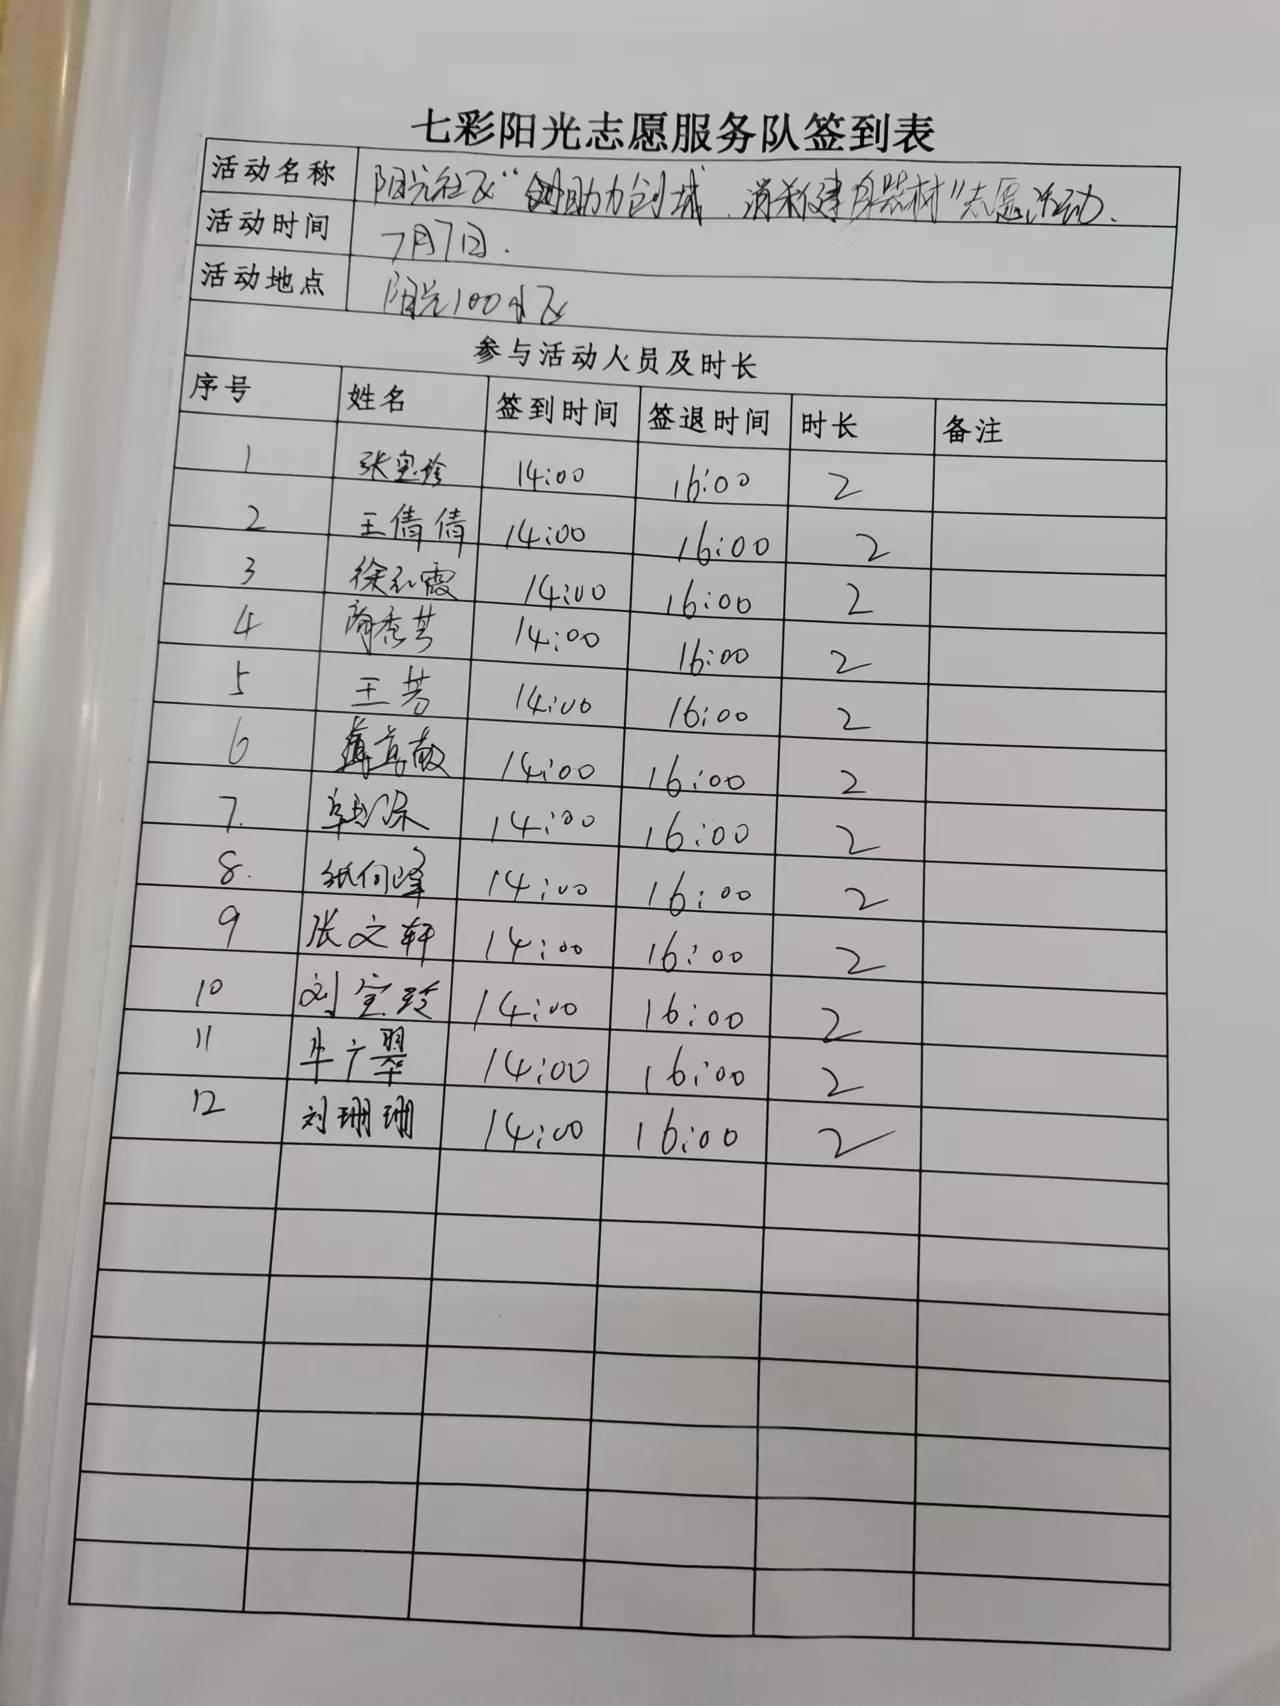 七彩阳光志愿服务队签到表
活动名称 阳光社区“助力创城 消杀健身器材”志愿活动.
活动时间 7月7日.
活动地点 阳光100小区
参与活动人员及时长
序号 姓名 签到时间 签退时间 时长 备注
1 张宝珍 14:00 16:00 2
2 王倩倩 14:00 16:00 2
3 徐红霞 14:00 16:00 2
4 14:00 16:00 2
5 王芳 14:00 16:00 2
6 14:00 16:00 2
7. 14:00 16:00 2
8. 14:00 16:00 2
9 张文轩 14:00 16:00 2
10 刘宝玲 14:00 16:00 2
11 牟广翠 14:00 16:00 2
12 刘珊珊 14:00 16:00 2